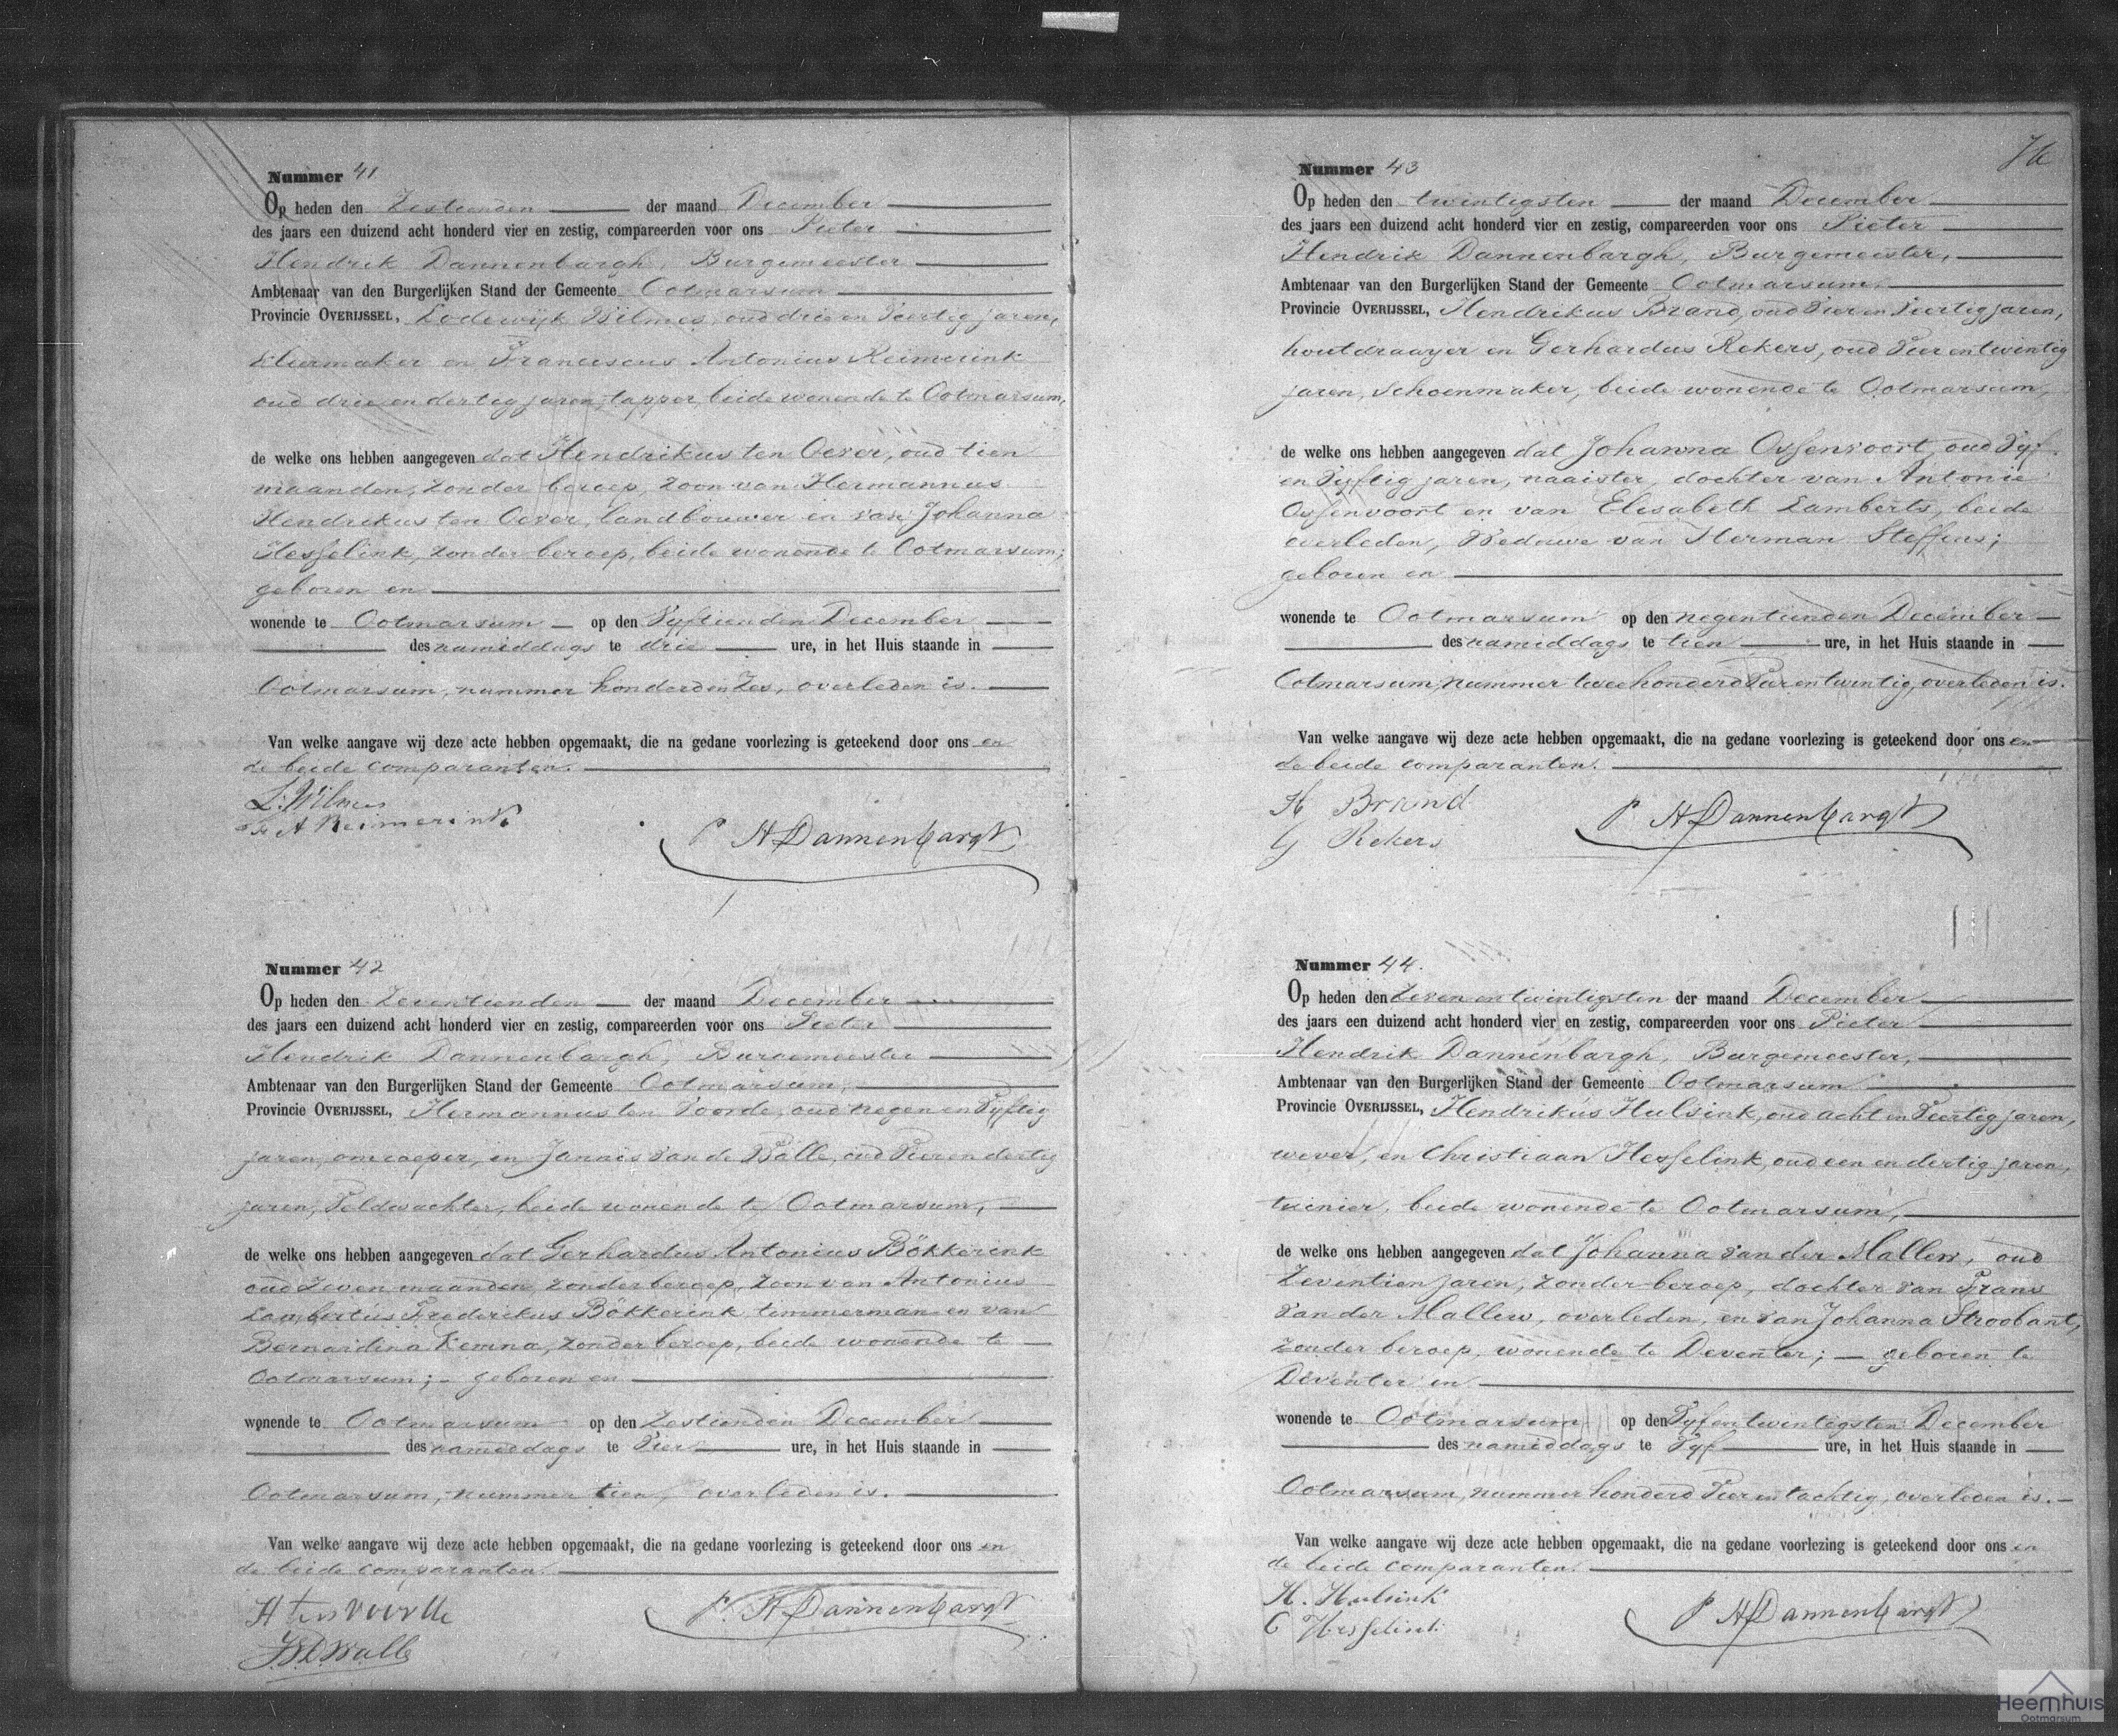 Nummer 41
Op heden den Zestienden der maand December
des jaars een duizend acht honderd vier en zestig, compareerden voor ons Pieter
Hendrik Dannenbargh, Burgemeester
Ambtenaar van den Burgerlijken Stand der Gemeente Ootmarsum
Provincie OVERIJSSEL, Lodewijk Wilmes, oud drie en veertig jaren,
kleermaker en Franciscus Antonius Reimerink
oud drie en dertig jaren, tapper, beide wonende te Ootmarsum,
de welke ons hebben aangegeven dat Hendrikus ten Oever, oud tien
maanden, zonder beroep, zoon van Hermannus
Hendrikus ten Oever, landbouwer en van Johanna
Hesselink, zonder beroep, beide wonende te Ootmarsum;
geboren en
wonende te Ootmarsum op den vyftienden December
des namiddags te drie ure, in het Huis staande in
Ootmarsum, nummer honderdenzes, overleden is.
Van welke aangave wij deze acte hebben opgemaakt, die na gedane voorlezing is geteekend door ons en
de beide comparanten.
L. Wilmes
F A Reimerink
P H Dannenbargh
Nummer 42
Op heden den Zeventienden der maand December
des jaars een duizend acht honderd vier en zestig, compareerden voor ons Pieter
Hendrik Dannenbargh, Burgemeester
Ambtenaar van den Burgerlijken Stand der Gemeente Ootmarsum,
Provincie OVERIJSSEL, Hermannus ten Voorde, oud negen en vyftig
jaren, omroeper, en Jannis van de Walle, oud vier en dertig
jaren, veldwachter, beide wonende te Ootmarsum,
de welke ons hebben aangegeven dat Gerhardus Antonius Bökkerink
oud zeven maanden, zonder beroep, zoon van Antonius
Lambertus Frederikus Bökkerink timmerman en van
Bernardina Kemna, zonder beroep, beide wonende te
Ootmarsum; - geboren en
wonende te Ootmarsum op den Zestienden December
des namiddags te vier ure, in het Huis staande in
Ootmarsum, nummer tien, overleden is.
Van welke aangave wij deze acte hebben opgemaakt, die na gedane voorlezing is geteekend door ons en
de beide comparanten.
H ten Voorde
J.V.D.Walle
P. H Dannenbargh
76
Nummer 43
Op heden den twintigsten der maand December
des jaars een duizend acht honderd vier en zestig, compareerden voor ons Pieter
Hendrik Dannenbargh, Burgemeester,
Ambtenaar van den Burgerlijken Stand der Gemeente Ootmarsum,
Provincie OVERIJSSEL, Hendrikus Brand, oud vier en veertig jaren,
houtdraayer en Gerhardus Rekers, oud vier en twintig
jaren, schoenmaker, beide wonende te Ootmarsum,
de welke ons hebben aangegeven dat Johanna Ossenvoort, oud vyf
en vyftig jaren, naaister, dochter van Antonie
Ossenvoort en van Elisabeth Lamberts, beide
overleden, Weduwe van Herman Steffens;
geboren en
wonende te Ootmarsum op den negentienden December
des namiddags te tien ure, in het Huis staande in
Ootmarsum, nummer twee honderd vier en twintig, overleden is.
Van welke aangave wij deze acte hebben opgemaakt, die na gedane voorlezing is geteekend door ons en
de beide comparanten.
H Brand
G Rekers
P H Dannenbargh
Nummer 44.
Op heden den Zeven en twintigsten der maand December
des jaars een duizend acht honderd vier en zestig, compareerden voor ons Pieter
Hendrik Dannenbargh, Burgemeester,
Ambtenaar van den Burgerlijken Stand der Gemeente Ootmarsum
Provincie OVERIJSSEL, Hendrikus Hulsink, oud acht en veertig jaren,
wever, en Christiaan Hesselink, oud een en dertig jaren,
tuinier, beide wonende te Ootmarsum,
de welke ons hebben aangegeven dat Johanna van der Mallen, oud
Zeventien jaren, zonder beroep, dochter van Frans
van der Mallen, overleden, en van Johanna Stroobant,
zonder beroep, wonende te Deventer; - geboren te
Deventer en
wonende te Ootmarsum op den vyf en twintigsten December
des namiddags te vyf ure, in het Huis staande in
Ootmarsum, nummer honderd vier en tachtig, overleden is.
Van welke aangave wij deze acte hebben opgemaakt, die na gedane voorlezing is geteekend door ons en
de beide comparanten.
H. Hulsink
C Hesselink
P H Dannenbargh
Heemhuis
Ootmarsum